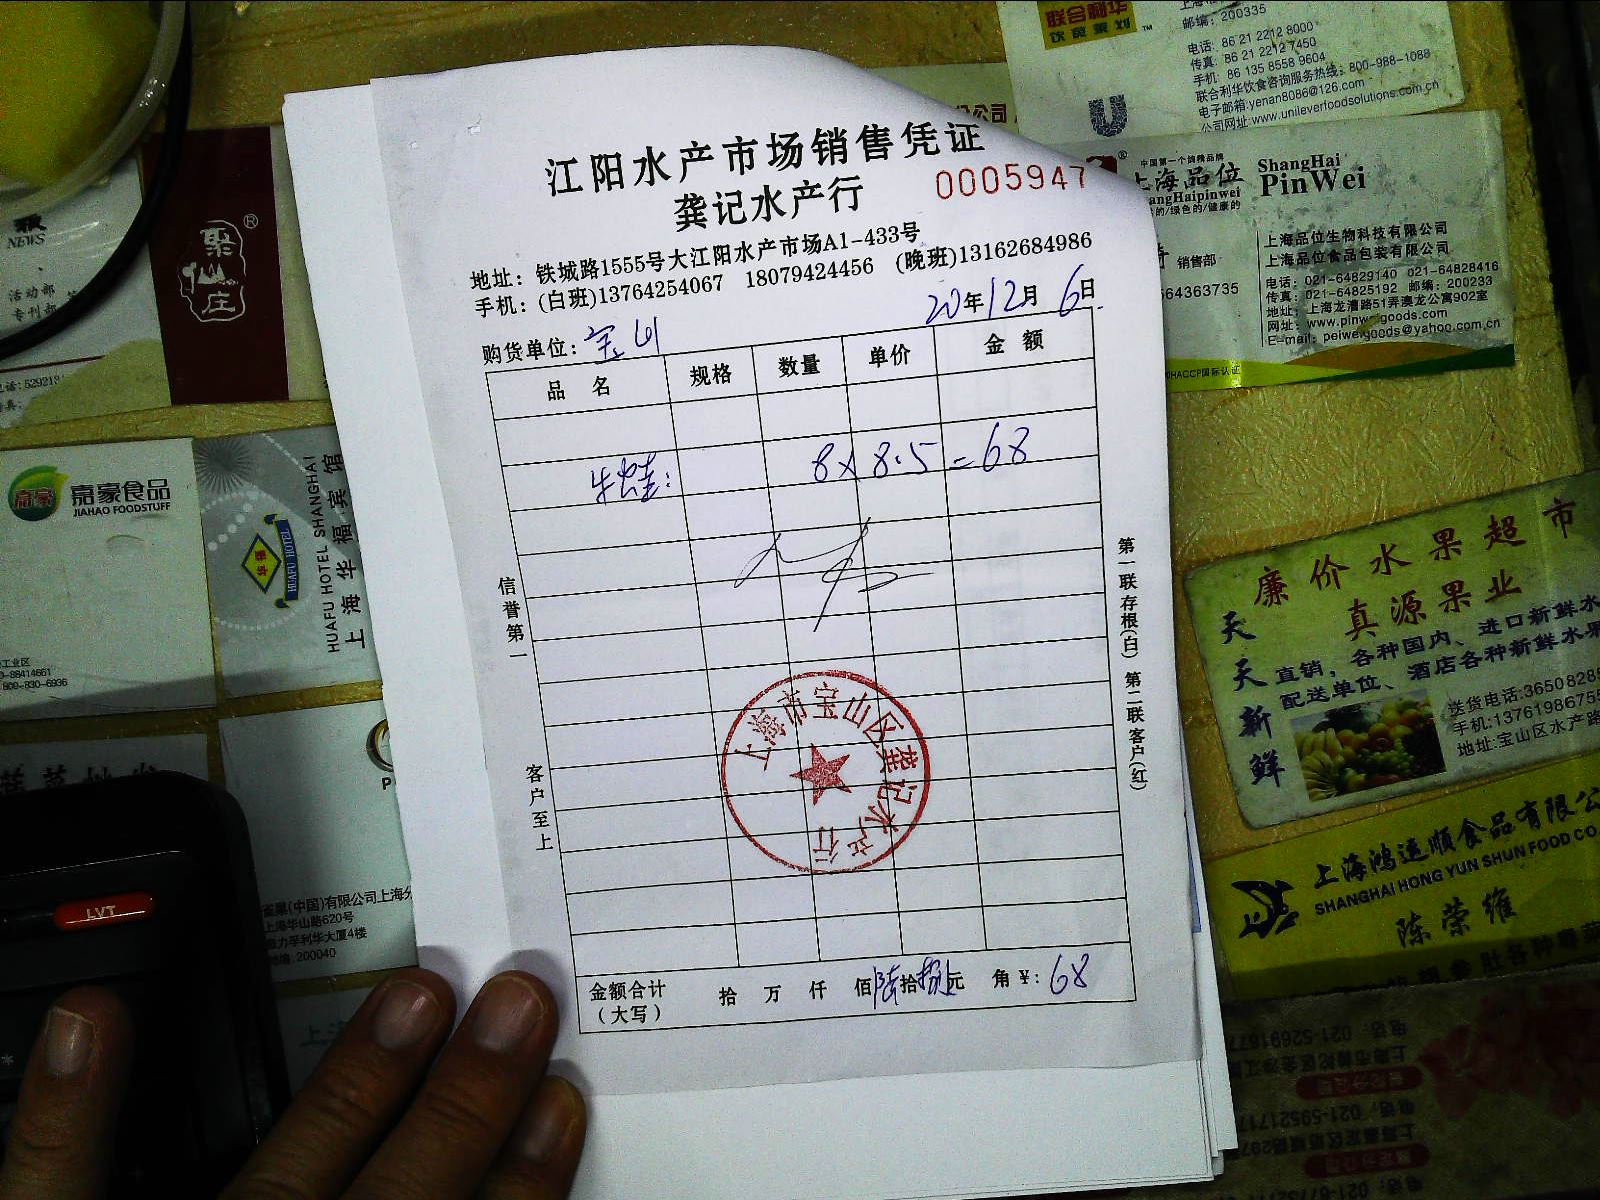 江阳水产市场销售凭证
龚记水产行
0005947
地址：铁城路1555号大江阳水产市场A1-433号
手机：(白班)13764254067 18079424456 (晚班)13162684986
20年12月6日
购货单位：宝山
品 名 规格 数量 单价 金 额
牛蛙： 8×8.5=68
信誉第一
客户至上
第一联存根(白) 第二联客户(红)
上海市宝山区龚记水产行
金额合计 拾 万 仟 佰陆拾捌元 角 ¥：68
（大写）
联合利华
饮食策划™
邮编：200335
电话: 86 21 2212 8000
传真: 86 21 2212 7450
手机: 86 135 8558 9604
联合利华饮食咨询服务热线: 800-988-1088
电子邮箱:yenan8086@126.com
公司网址:www.unileverfoodsolutions.com.cn
公司
中国第一个鸽精品牌
上海品位
ShangHai
PinWei
angHaipinwei
的/绿色的/健康的
上海品位生物科技有限公司
上海品位食品包装有限公司
销售部
564363735
电话：021-64829140 021-64828416
传真：021-64825192 邮编：200233
地址：上海龙漕路51弄澳龙公寓902室
网址：www.pinweigoods.com
E-mail: peiweigoods@yahoo.com.cn
HACCP国际认证
NEWS
活动部
专刊部
聚仙庄®
嘉豪
嘉豪食品
JIAHAO FOODSTUFF
工业区
-88414661
809-830-6936
HUAFU HOTEL
HUAFU HOTEL SHANGHAI
上海华福宾馆
雀巢(中国)有限公司上海分
上海华山路620号
200040
LVT
廉价水果超市
真源果业
天天新鲜
直销，各种国内、进口新鲜水
配送单位、酒店各种新鲜水果
送货电话:3650828
手机:1376198675
地址:宝山区水产路
上海鸿运顺食品有限公
SHANGHAI HONG YUN SHUN FOOD CO.
陈荣维